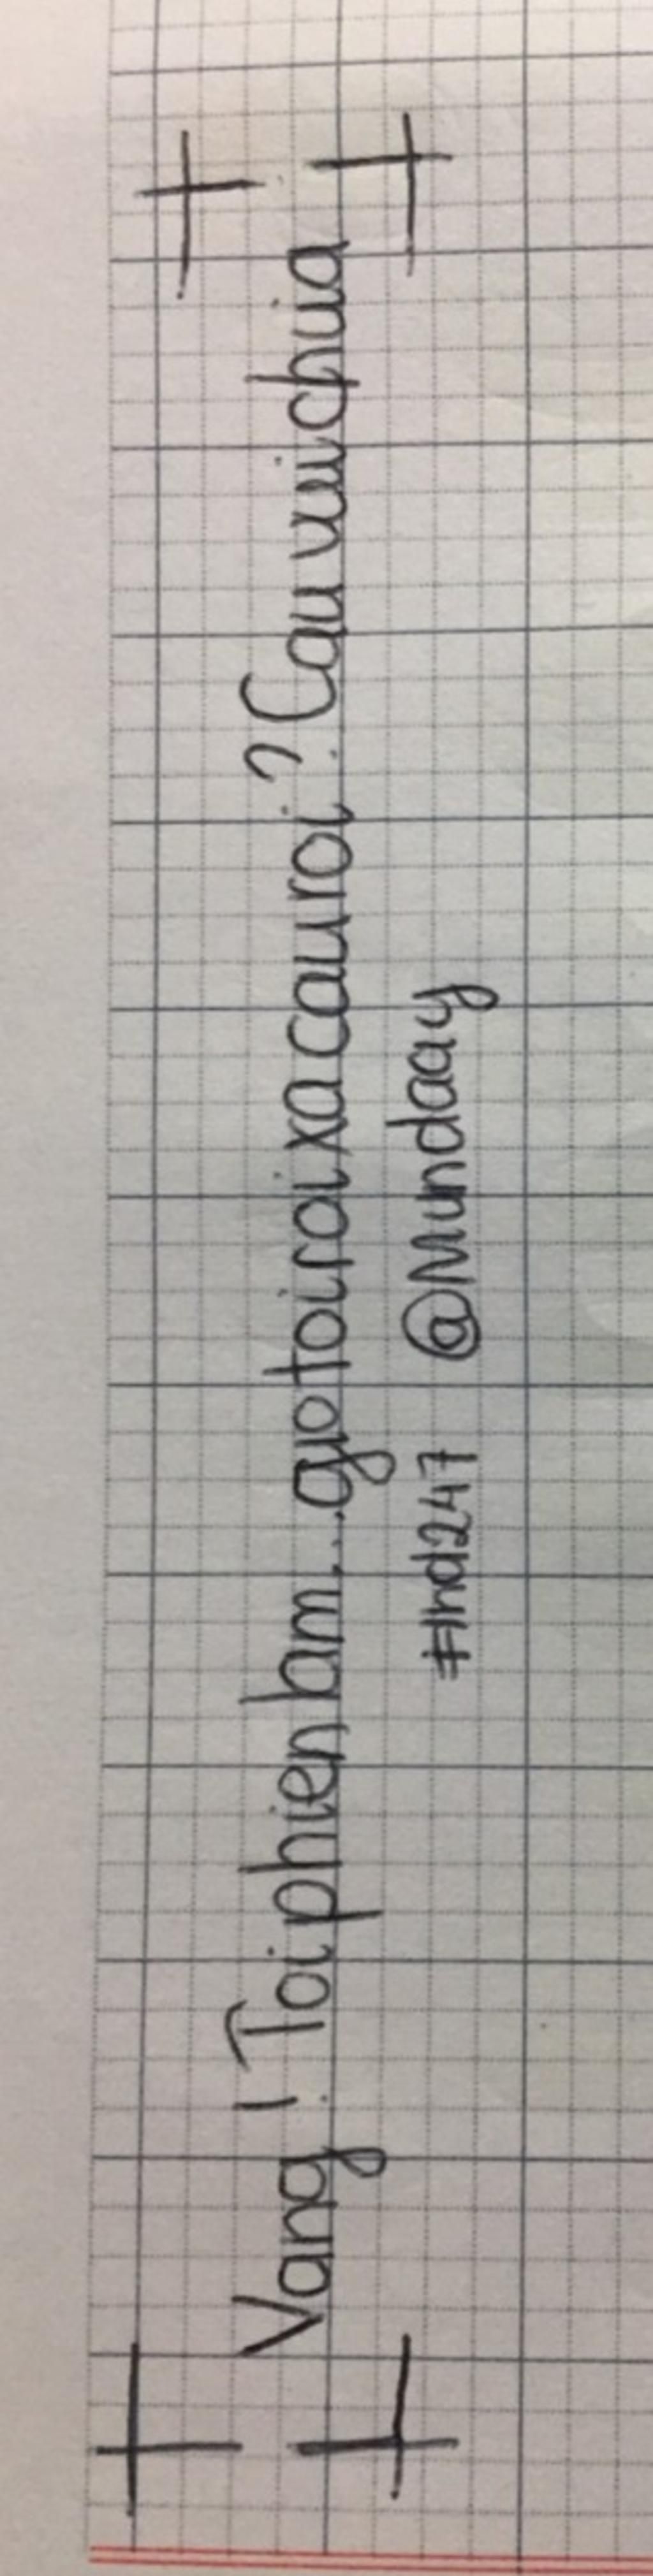 Vang! Toi phien lam...gio toi roi xa cau roi? Cau vui chua
#lhd247 @Mundaay